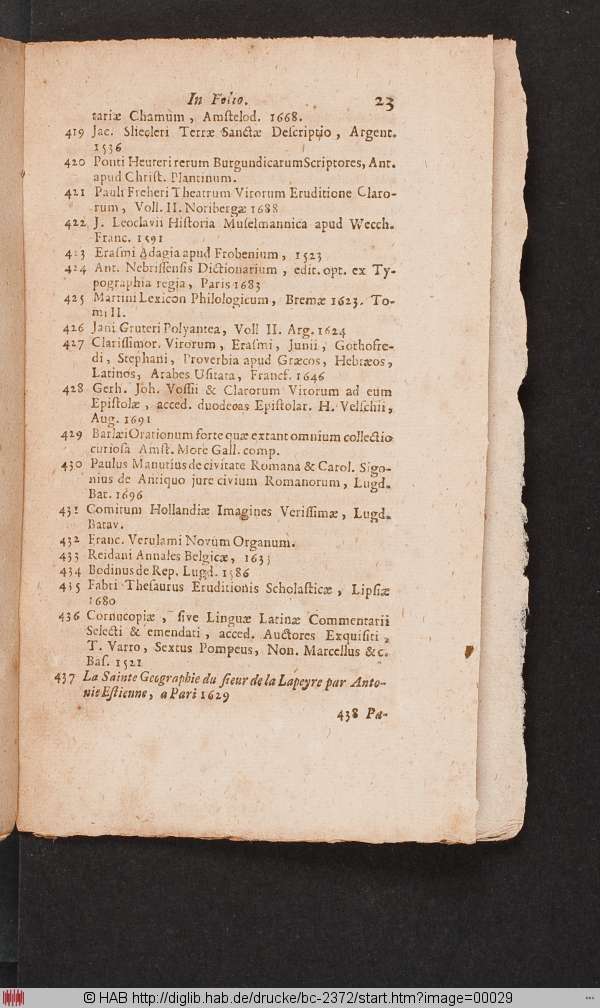 In Folio. 23
tariæ Chamùm, Amstelod. 1668.
419 Jac. Sliegleri Terræ Sanctæ Descriptio, Argent.
1536
420 Ponti Heuteri rerum Burgundicarum Scriptores, Ant.
apud Christ. Plantinum.
421 Pauli Freheri Theatrum Virorum Eruditione Claro-
rum, Voll. II. Noribergæ 1688
422 J. Leoclavii Historia Muselmannica apud Wecch.
Franc. 1591
423 Erasmi Adagia apud Frobenium, 1523
424 Ant. Nebrissensis Dictionarium, edit. opt. ex Ty-
pographia regia, Paris 1683
425 Martini Lexicon Philologicum, Bremæ 1623. To-
mi II.
426 Jani Gruteri Polyantea, Voll II. Arg. 1624
427 Clarissimor. Virorum, Erasmi, Junii, Gothofre-
di, Stephani, Proverbia apud Græcos, Hebræos,
Latinos, Arabes Usitata, Francf. 1646
428 Gerh. Joh. Vossii & Clarorum Virorum ad eum
Epistolæ, acced. duodecas Epistolar. H. Velschii,
Aug. 1691
429 Barlæi Orationum forte quæ extant omnium collectio
curiosa Amst. More Gall. comp.
430 Paulus Manutius de civitate Romana & Carol. Sigo-
nius de Antiquo jure civium Romanorum, Lugd.
Bat. 1696
431 Comitum Hollandiæ Imagines Verissimæ, Lugd.
Batav.
432 Franc. Verulami Novum Organum.
433 Reidani Annales Belgicæ, 1633
434 Bodinus de Rep. Lugd. 1586
435 Fabri Thesaurus Eruditionis Scholasticæ, Lipsiæ
1680
436 Cornucopiæ, sive Linguæ Latinæ Commentarii
Selecti & emendati, acced. Auctores Exquisiti,
T. Varro, Sextus Pompeus, Non. Marcellus &c.
Bas. 1521
437 La Sainte Geographie du sieur de la Lapeyre par Anto-
nie Estienne, a Pari 1629
438 Pa-
© HAB http://diglib.hab.de/drucke/bc-2372/start.htm?image=00029